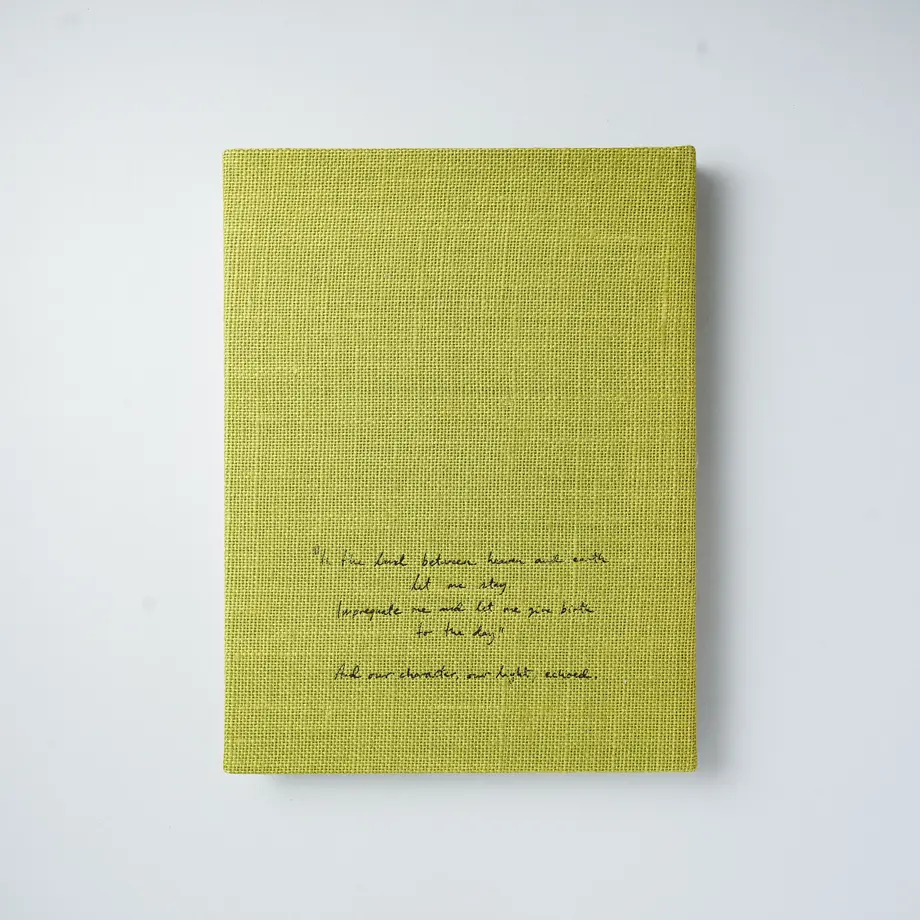 "In the dusk between heaven and earth
let me stay
Impregnate me and let me give birth
to the day"
And our character, our light, echoed.